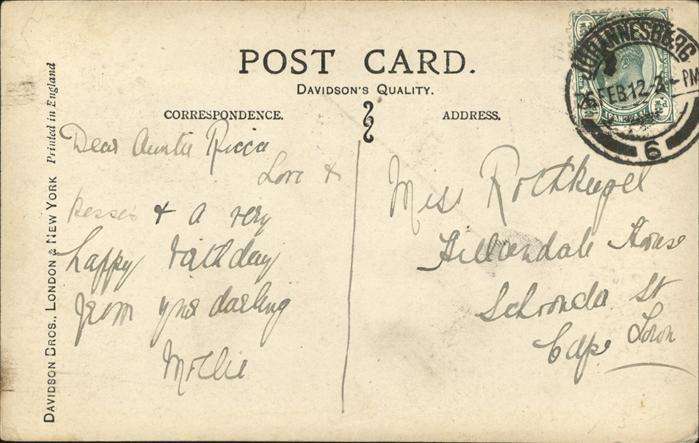 POST CARD.
DAVIDSON'S QUALITY.
CORRESPONDENCE.
ADDRESS.
Dear Auntie Ricca
Love &
kesses & a very
happy birthday
from your darling
Mollie
Miss Rothkugel
House
St
Cape Town
JOHANNESBURG
FEB 12
6
TRANSVAAL
DAVIDSON BROS., LONDON & NEW YORK Printed in England